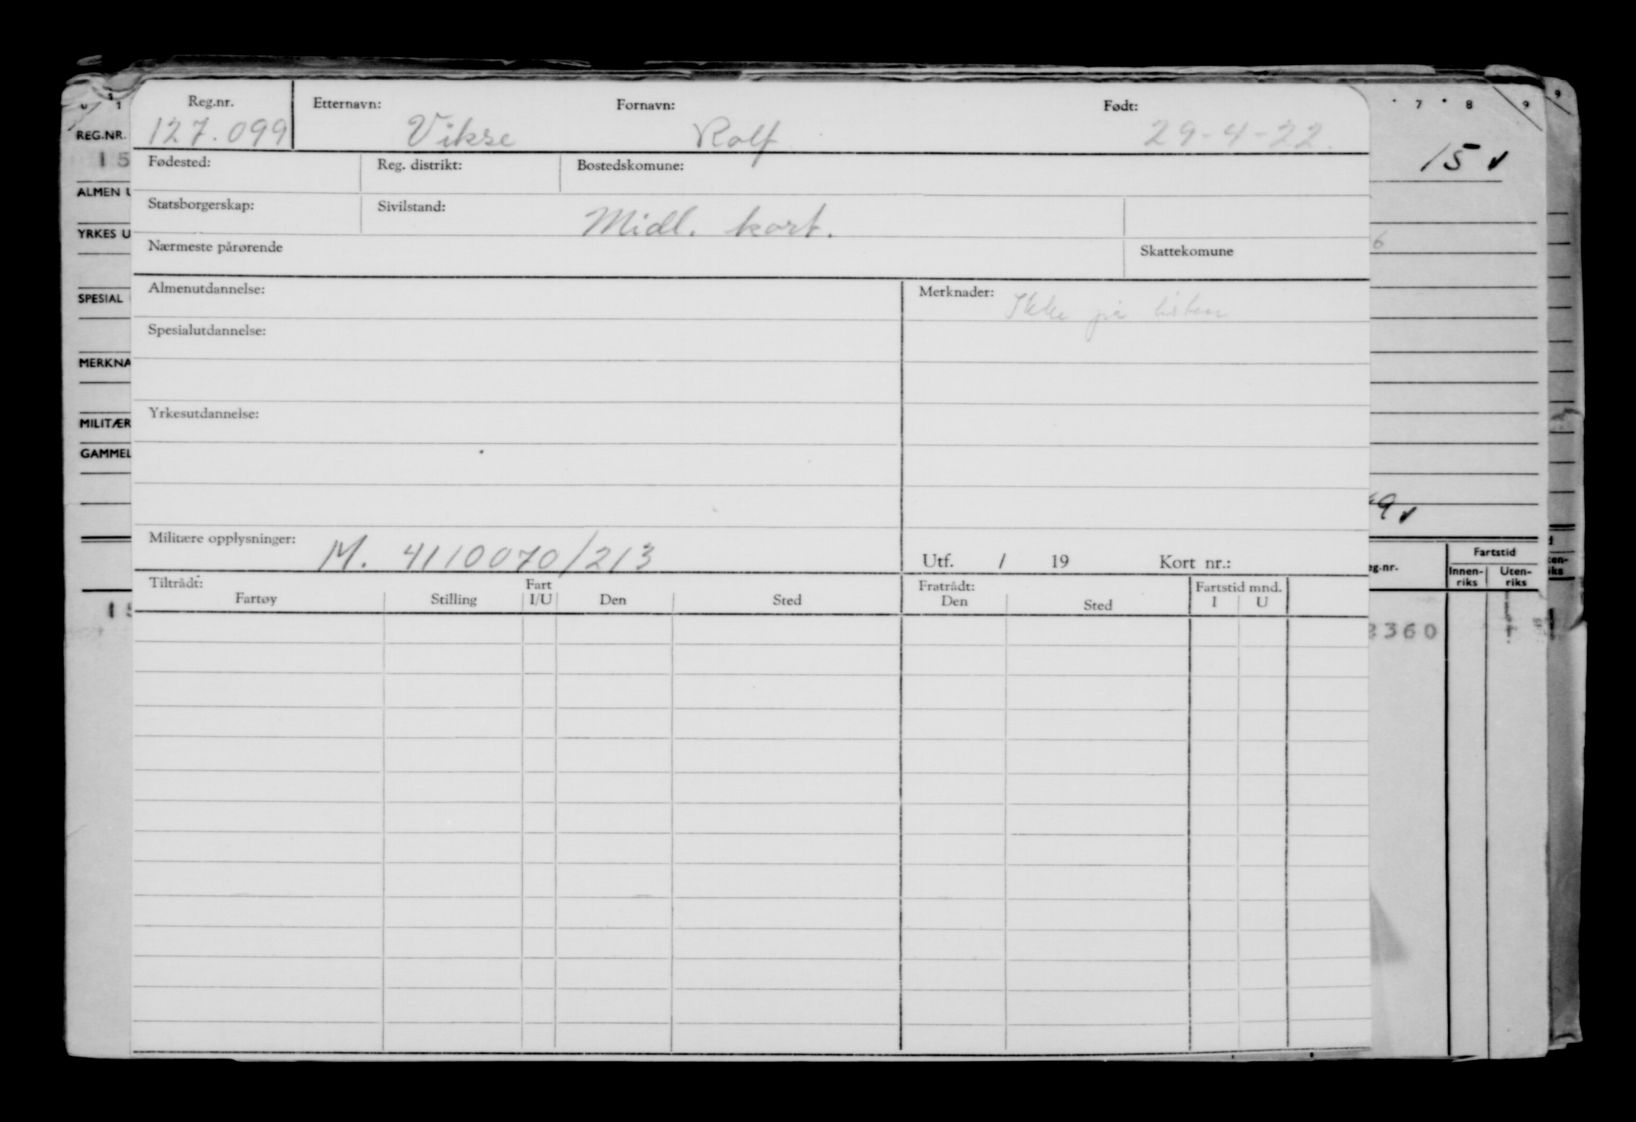 Reg.nr. Etternavn: Fornavn: Født:
127.099 Vikse Rolf 29-4-22.
Fødested: Reg. distrikt: Bostedskomune:
Statsborgerskap: Sivilstand:
Midl. kort.
Nærmeste pårørende Skattekomune
Almenutdannelse: Merknader: Ikke på listen
Spesialutdannelse:
Yrkesutdannelse:
Militære opplysninger: M. 4110070/213
Utf. / 19 Kort nr.:
Tiltrådt: Fratrådt: Fartstid mnd.
Fartøy Stilling Fart I/U Den Sted Den Sted I U
1 7 8 9 9
REG.NR.
15 15
ALMEN U
YRKES U
6
SPESIAL
MERKNA
MILITÆR
GAMMEL
9
g.nr. Fartstid
Innen-riks Uten-riks
15 3360